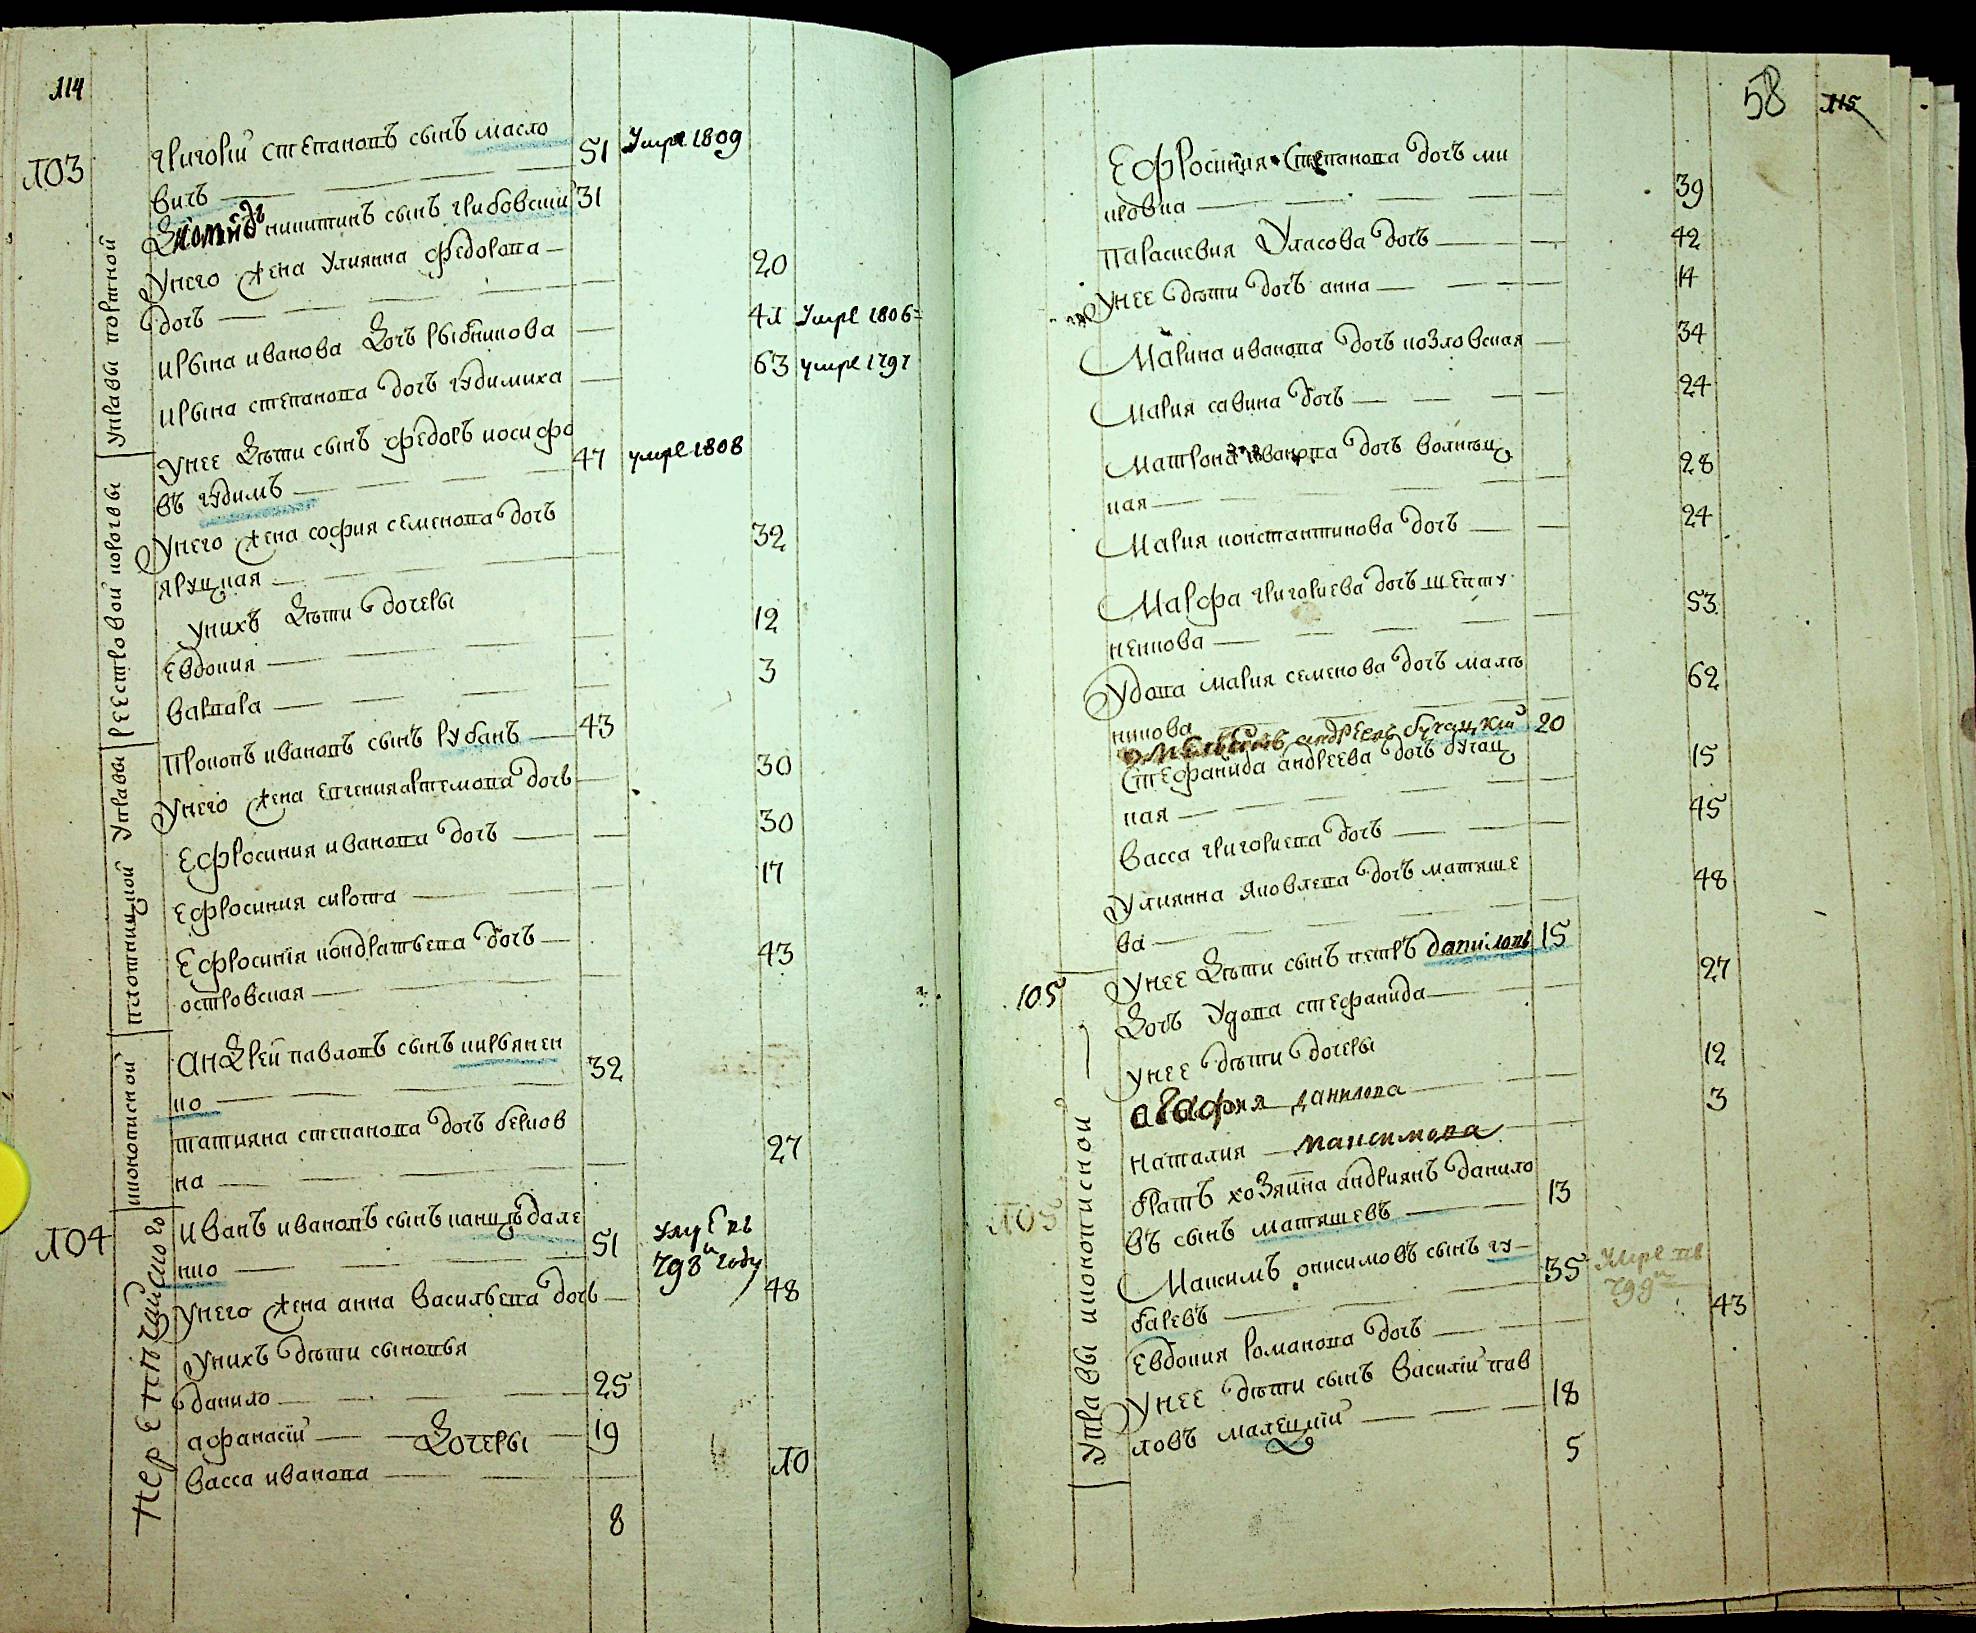 114
103
Григорій степановъ сынъ масло
вичъ 51 Умре 1809
никитинъ сынъ грибовский 31
Унего жена Улиянна федорова
дочь 20
ирына иванова дочь рыбникова 41 Умре 1806
ирына степанова дочь гудимиха 63 умре 1797
Унее дѣти сынъ федоръ иосифо
въ гудимъ 47 умре 1808
Унего жена софия семенова дочь
яруцкая 32
Унихъ дѣти дочеры
Евдокия 12
варвара 3
Прокопъ ивановъ сынъ рубанъ 43
Унего жена евгения артемова дочь 30
Ефросиния иванова дочь 30
Ефросиния сирота 17
Ефросинія кондратьева дочь
островская 43
Андрей павловъ сынъ кирьянен
ко 32
татияна степанова дочь берков
на 27
104
Иванъ ивановъ сынъ канцыдале
нко 51 798 году
Унего жена анна васильева дочь 48
Унихъ дѣти сыновья
данило 25
афанасій 19
Дочеры
васса иванова 10
8
Управы портной
реестровой корогвы
плотницкой Управы
иконописной
58
115
Ефросиния Степанова дочь ми
кровна 39
Параскевия Уласова дочь 42
Унее дѣти дочь анна 14
Марина иванова дочь козловская 34
Мария савина дочь 24
Матрона иванова дочь волиньц
кая 28
Мария константинова дочь 24
Марфа григориева дочь шепту
ненкова 53
Удова мария семенова дочь малѣ
никова 62
андреевъ бучацкий 20
Стефанида андреева дочь бучац
кая 15
Васса григориева дочь 45
Улиянна яковлева дочь матяше
ва 48
105
Унее дѣти сынъ петръ даниловъ 15
Дочь Удова стефанида 27
Унее дѣти дочеры
агафия данилова 12
Наталия максимова 3
братъ хозяина андриянъ данило
въ сынъ матяшевъ 13
105
Максимъ онисимовъ сынъ гу
баревъ 35 Умре въ
799
Евдокия романова дочь 43
Унее дѣти сынъ василій пав
ловъ малецкій 18
5
Управы иконописной